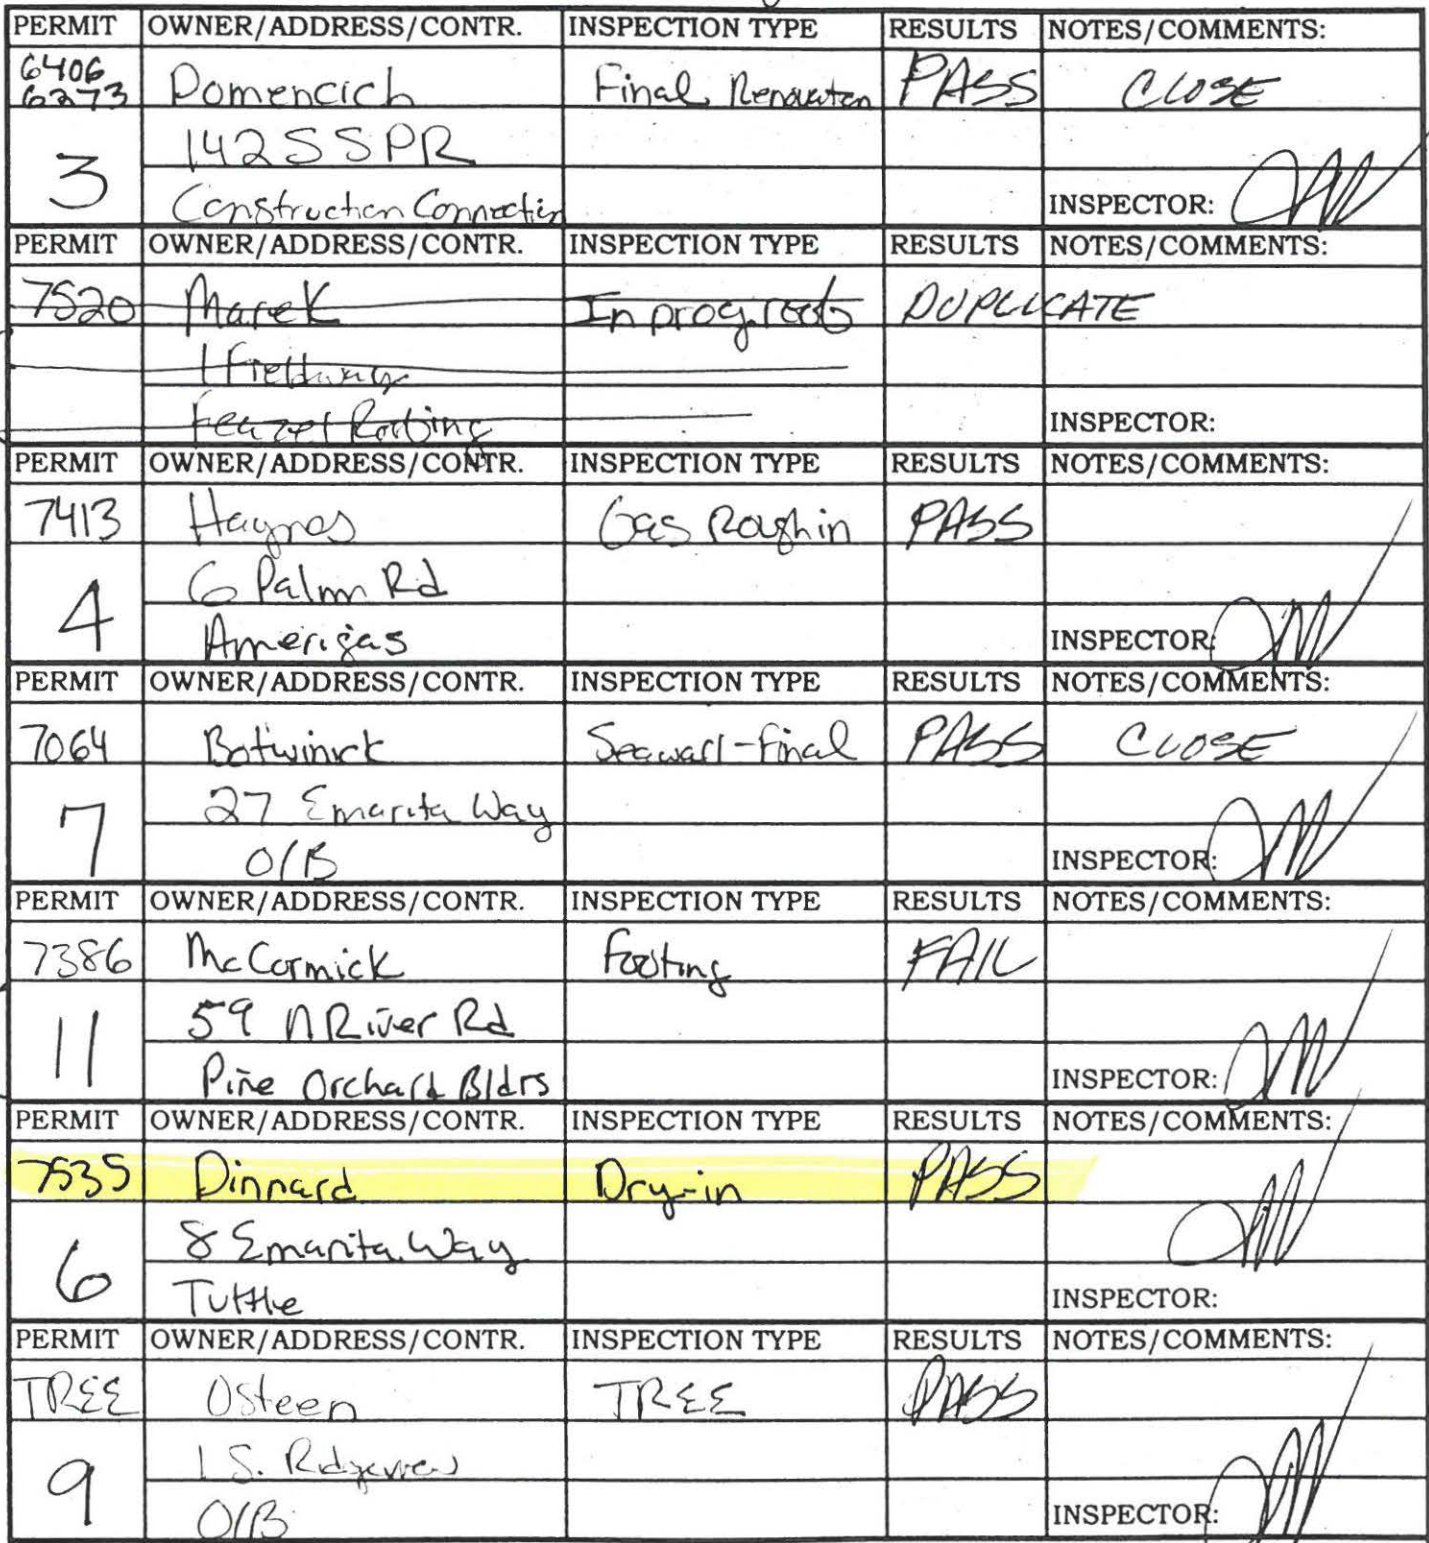 PERMIT OWNER/ADDRESS/CONTR. INSPECTION TYPE RESULTS NOTES/COMMENTS:
6406
6273 Domencich Final Renovation PASS CLOSE
3 142 S SPR
Construction Connection INSPECTOR:
PERMIT OWNER/ADDRESS/CONTR. INSPECTION TYPE RESULTS NOTES/COMMENTS:
7520 Marek In prog roof DUPLICATE
1 Fieldway
Roofing INSPECTOR:
PERMIT OWNER/ADDRESS/CONTR. INSPECTION TYPE RESULTS NOTES/COMMENTS:
7413 Haynes Gas Rough in PASS
4 6 Palm Rd
Amerigas INSPECTOR:
PERMIT OWNER/ADDRESS/CONTR. INSPECTION TYPE RESULTS NOTES/COMMENTS:
7064 Botwinick Seawall-Final PASS CLOSE
7 27 Emarita Way
O/B INSPECTOR:
PERMIT OWNER/ADDRESS/CONTR. INSPECTION TYPE RESULTS NOTES/COMMENTS:
7386 McCormick Footing FAIL
11 59 N River Rd
Pine Orchard Bldrs INSPECTOR:
PERMIT OWNER/ADDRESS/CONTR. INSPECTION TYPE RESULTS NOTES/COMMENTS:
7535 Dinnard Dry-in PASS
6 8 Emarita Way
Tuttle INSPECTOR:
PERMIT OWNER/ADDRESS/CONTR. INSPECTION TYPE RESULTS NOTES/COMMENTS:
TREE Osteen TREE PASS
9 1 S. Ridgeview
O/B INSPECTOR: